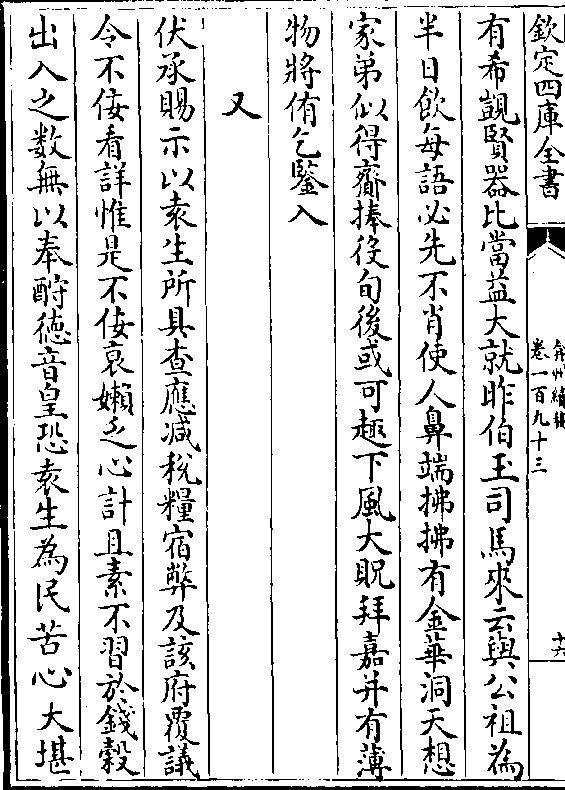 欽定四庫全書
弇州續稿
卷一百九十三
十六
有希覬賢器比當益大就昨伯玉司馬來云與公祖為
半日飲每語必先不肖使人鼻端拂拂有金華洞天想
家弟似得齋捧役旬後或可趣下風大貺拜嘉并有薄
物將侑乞鑒入
又
伏承賜示以袁生所具查應減稅糧宿弊及該府覆議
令不佞看詳惟是不佞衰嬾乏心計且素不習於錢榖
出入之數無以奉酧徳音皇恐袁生為民苦心大堪